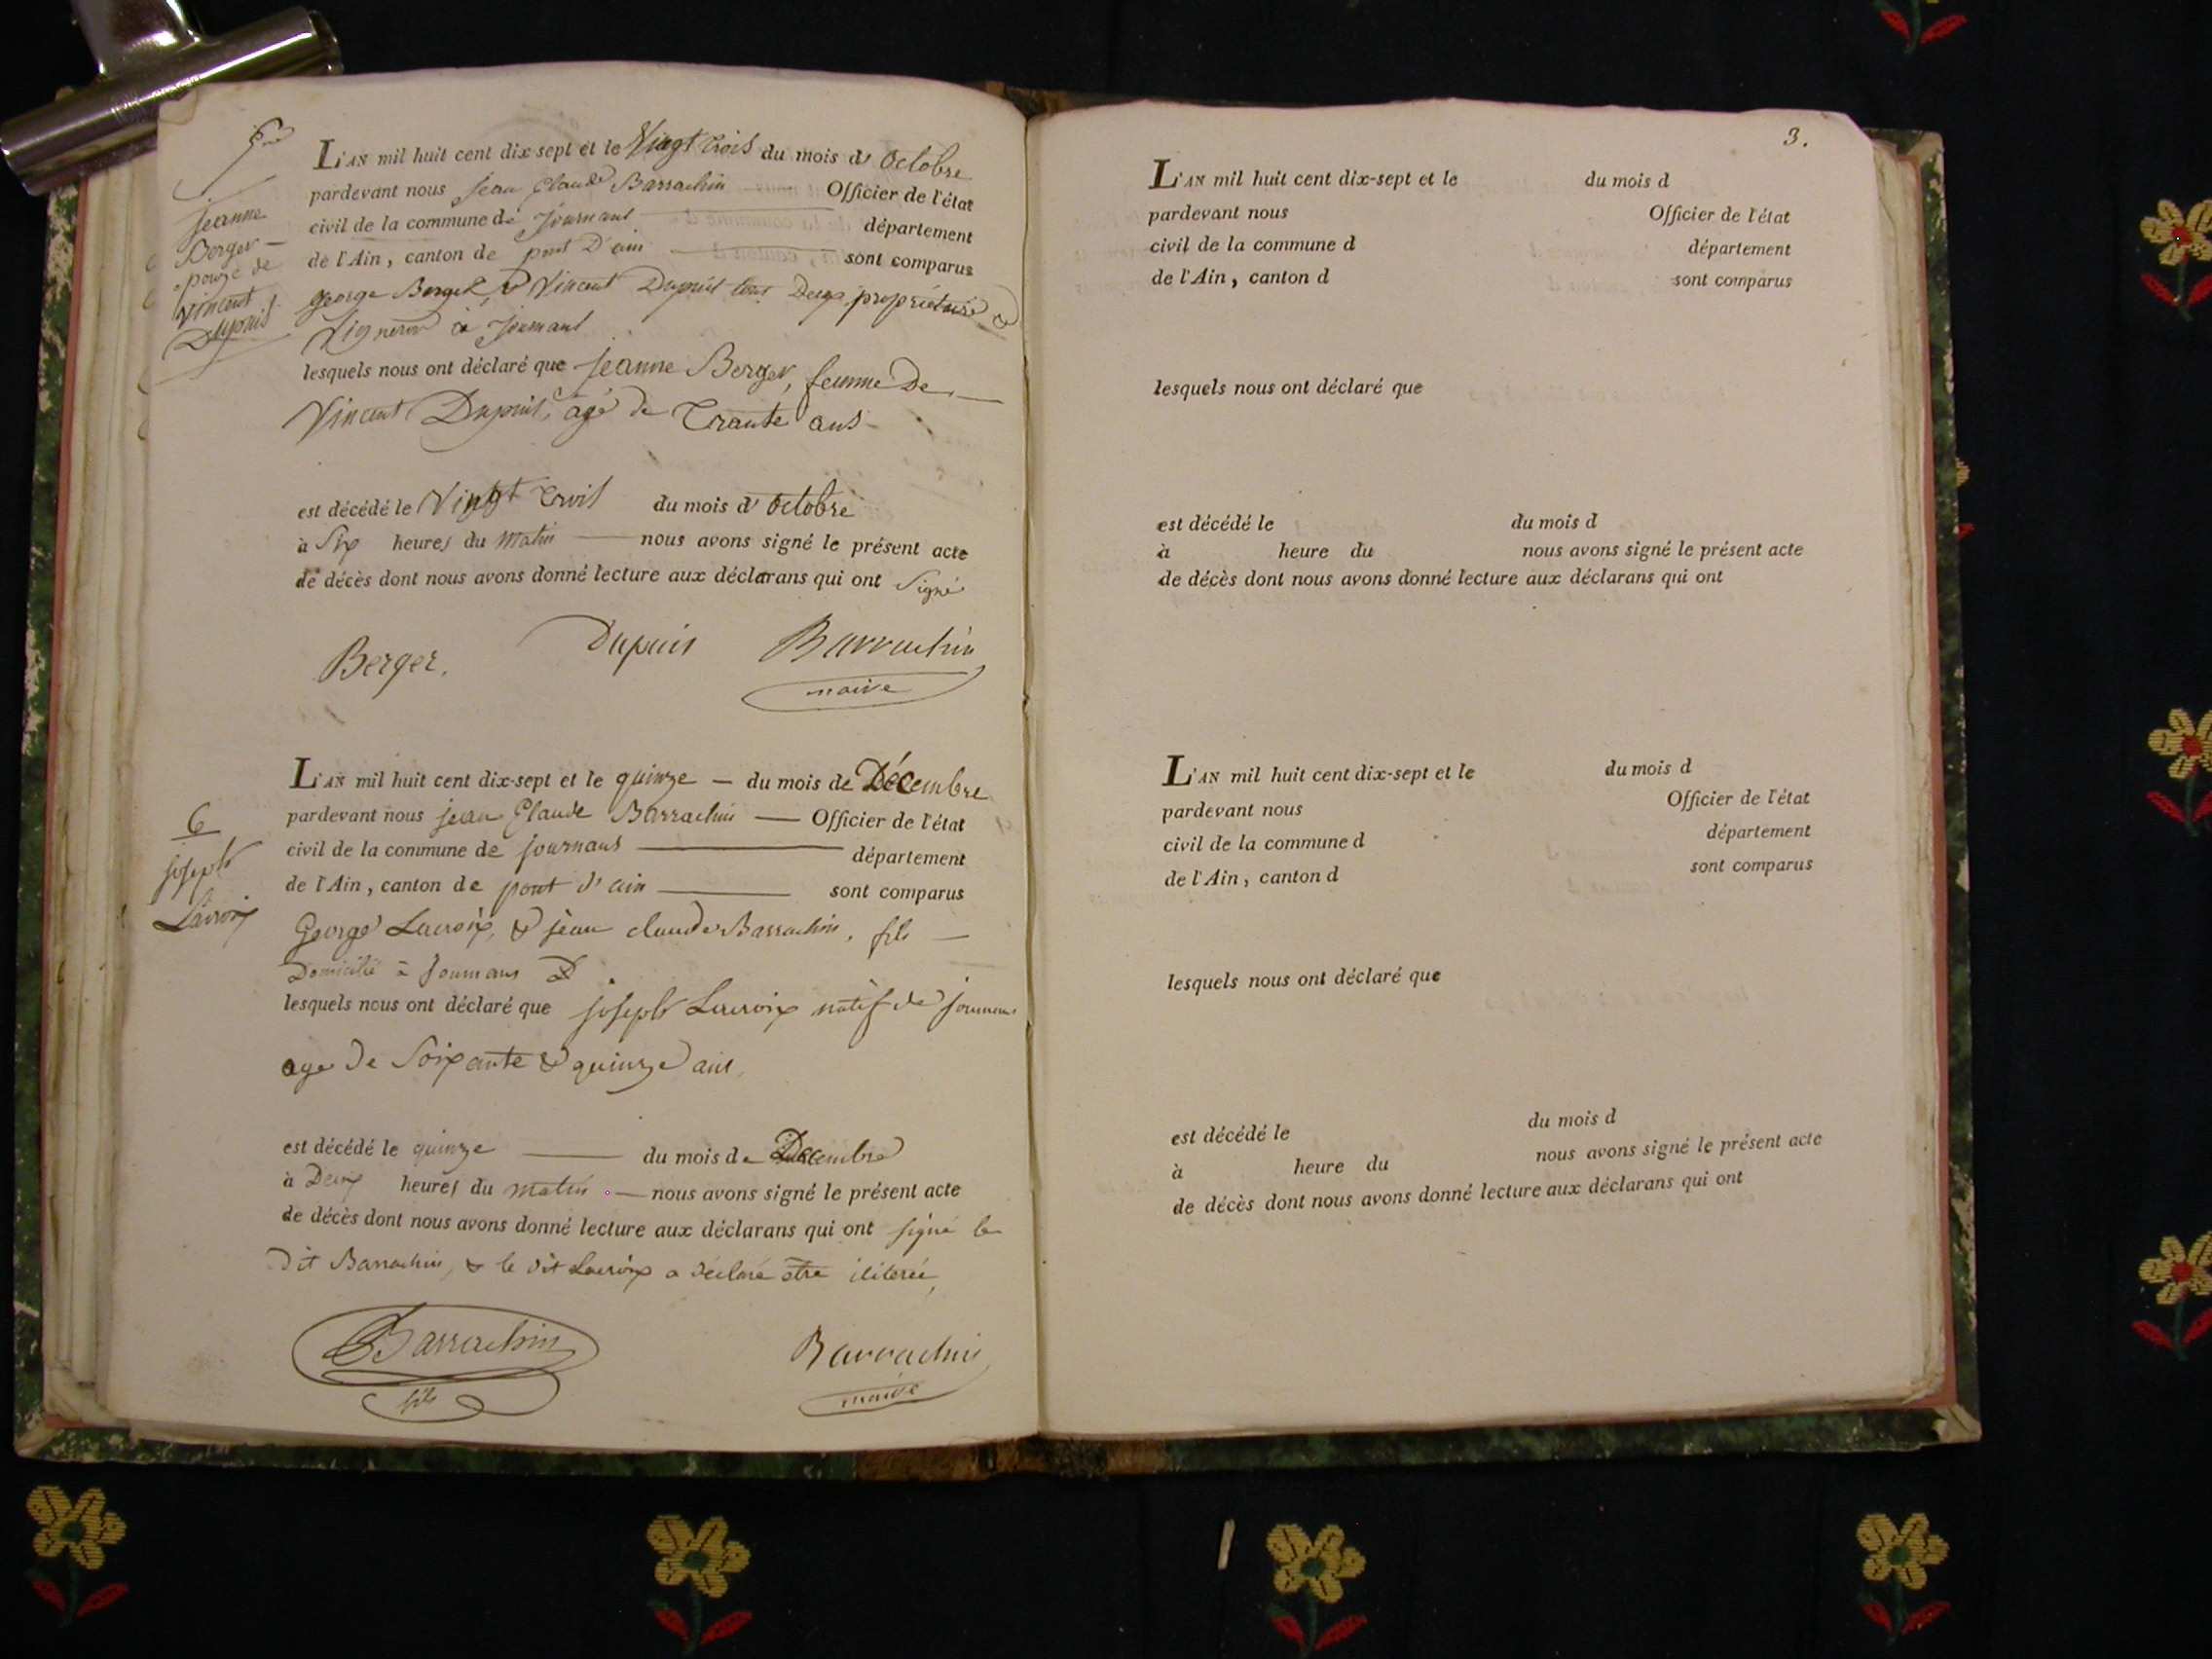 5
Jeanne
Berger
epouze de
Vincent
Dupuis
L'AN mil huit cent dix-sept et le Vingt trois du mois d'octobre
pardevant nous jean Claude Barrachin Officier de l'état
civil de la commune de Journans département
de l'Ain, canton de pont D'ain sont comparus
george Berger, & Vincent Dupuis tous Deux propriétaire &
Vigneron à Journans
lesquels nous ont déclaré que jeanne Berger, femme De
Vincent Dupuis, agé de Trante ans
est décédé le Vingt trois du mois d'octobre
à Six heures du matin nous avons signé le présent acte
de décès dont nous avons donné lecture aux déclarans qui ont Signé
Berger. Dupuis Barrachin
maire
6
joseph
Lacroix
L'AN mil huit cent dix-sept et le quinze du mois de Décembre
pardevant nous jean Claude Barrachin Officier de l'état
civil de la commune de journans département
de l'Ain, canton de pont d'ain sont comparus
George Lacroix, & jean claude Barrachin, fils
Domicilié à Journans
lesquels nous ont déclaré que joseph Lacroix natif de journans
age De Soixante & quinze ans,
est décédé le quinze du mois de Decembre
à Deux heures du matin nous avons signé le présent acte
de décès dont nous avons donné lecture aux déclarans qui ont signé le
dit Barrachin, & le dit Lacroix a déclaré être iliterée,
Barrachin Barrachin
fils maire
3.
L'AN mil huit cent dix-sept et le du mois d
pardevant nous Officier de l'état
civil de la commune d département
de l'Ain, canton d sont comparus
lesquels nous ont déclaré que
est décédé le du mois d
à heure du nous avons signé le présent acte
de décès dont nous avons donné lecture aux déclarans qui ont
L'AN mil huit cent dix-sept et le du mois d
pardevant nous Officier de l'état
civil de la commune d département
de l'Ain, canton d sont comparus
lesquels nous ont déclaré que
est décédé le du mois d
à heure du nous avons signé le présent acte
de décès dont nous avons donné lecture aux déclarans qui ont